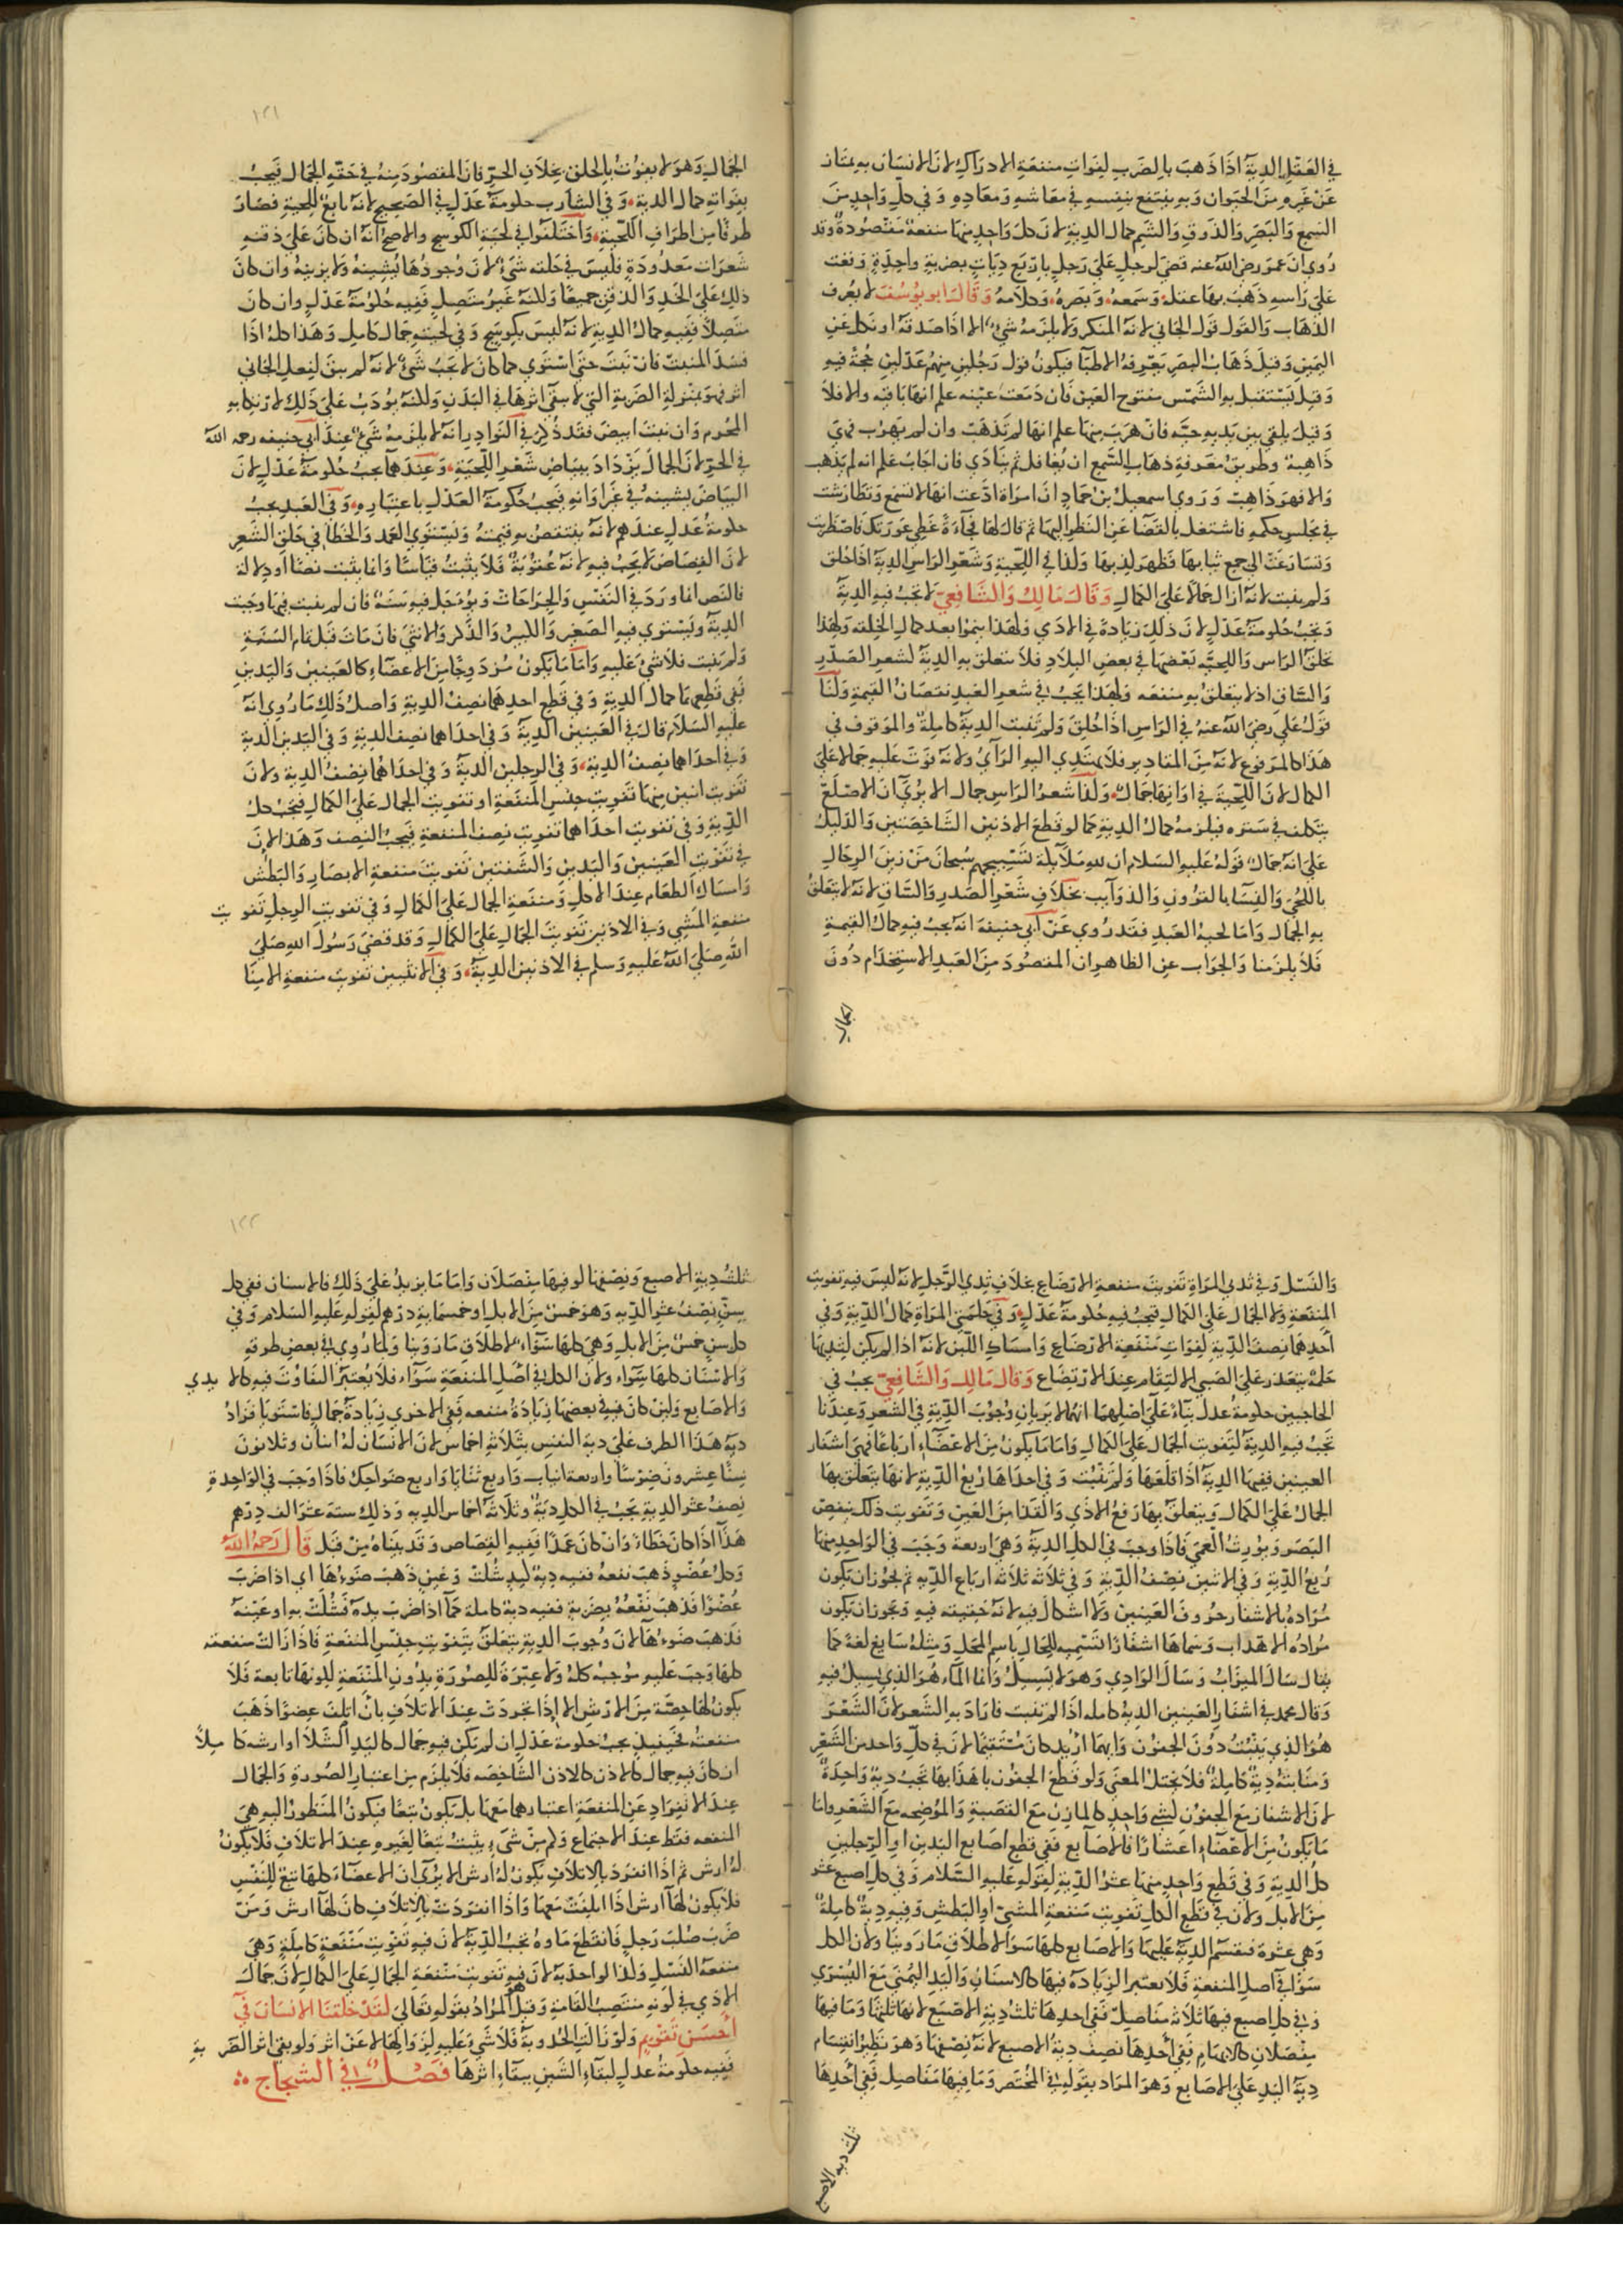 في العقل الدية اذا ذهب بالضرب لفوات منفعة الادراك لان الانسان به يمتاز
عن غيره من الحيوان وبه ينتفع بنفسه في معاشه ومعاده وفي كل واحد من
السمع والبصر والذوق والشم كمال الدية لان كل واحد منها منفعة مقصودة وقد
روي ان عمر رضي الله عنه قضى لرجل على رجل باربع ديات بضربة واحدة وقعت
على راسه ذهب بها عقله وسمعه وبصره وكلامه وقال ابو يوسف لا يعرف
الذهاب والقول قول الجاني لانه المنكر ولا يلزمه شي الا اذا صدقه او نكل عن
اليمين وقيل ذهاب البصر يعرفه الاطبا فيكون قول رجلين منهم عدلين حجة فيه
وقيل يستقبل به الشمس مفتوح العين فان دمعت عينه علم انها باقية والا فلا
وقيل يلقي بين يديه حية فان هرب منها علم انها لم تذهب وان لم يهرب فهي
ذاهبة وطريق معرفة ذهاب السمع ان يغافل ثم ينادي فان اجاب علم انه لم يذهب
والا فهو ذاهب وروي اسمعيل بن حماد ان امراة ادعت انها لا تسمع وتطارشت
في مجلس حكمه فاشتغل بالقضا عن النظر اليها ثم قال لها فجاءة غطي عورتك فاضطربت
وتسارعت الى جمع ثيابها فظهر كذبها وكذا في اللحية وشعر الراس الدية اذا حلق
ولم ينبت لانه ازال جمالا على الكمال وقال مالك والشافعي لا تجب فيه الدية
وتجب حكومة عدل لان ذلك زيادة في الادمي ولهذا ينموا بعد كمال الخلقة ولهذا
تحلق الراس واللحية بعضها في بعض البلاد فلا تتعلق به الدية كشعر الصدر
والساق اذ لا يتعلق به منفعه ولهذا يجب في شعر العبد نقصان القيمة ولنا
قول علي رضي الله عنه في الراس اذا حلق ولم ينبت الدية كاملة والموقوف في
هذا كالمرفوع لانه من المقادير فلا يهتدي اليه الراي ولانه فوت عليه جمالا على
الكمال لان اللحية في اوانها جمال وكذا شعر الراس جمال الا يرى ان الاصلع
يتكلف في ستره فيلزمه كمال الدية كما لو قطع الاذنين الشاخصتين والدليل
على انه جمال قوله عليه السلام ان لله ملائكة تسبيحهم سبحان من زين الرجال
باللحى والنسا بالقرون والذوآيب بخلاف شعر الصدر والساق لانه لا يتعلق
به الجمال واما لحية العبد فقد روي عن ابي حنيفة انه يجب فيه كمال القيمة
فلا يلزمنا والجواب عن الظاهر ان المقصود من العبد الاستخدام دون
الجمال
١٢١
الجمال وهو لا يفوت بالحلق بخلاف الحر فان المقصود منه في حقه الجمال فيجب
بفواته كمال الدية وفي الشارب حكومة عدل في الصحيح لانه تابع للحية فصار
طرفا من اطراف اللحية واختلفوا في لحية الكوسج والاصح انه ان كان على ذقنه
شعرات معدودة فليس في حلقه شي لان وجودها يشينه ولا يزينه وان كان
ذلك على الخد والذقن جميعا ولكنه غير متصل ففيه حكومة عدل وان كان
متصلا ففيه كمال الدية لانه ليس بكوسج وفي لحيته جمال كامل وهذا كله اذا
فسد المنبت فان نبت حتى استوي كما كان لا يجب شي لانه لم يبق لفعل الجاني
اثر فهو بمنزلة الضربة التي لا يبقى اثرها في البدن ولكنه يؤدب على ذلك لارتكابه
المحرم وان نبت ابيض فقد ذكر في النوادر انه لا يلزمه شي عند ابي حنيفه رحمه الله
في الحر لان الجمال يزداد ببياض شعر اللحية وعندهما يجب حكومة عدل لان
البياض يشينه في غير اوانه فيجب حكومة العدل باعتباره وفي العبد يجب
حكومة عدل عندهم لانه ينتقص به قيمته ويستوي العمد والخطا في حلق الشعر
لان القصاص لا يجب فيه لانه عقوبة فلا يثبت قياسا وانما يثبت نصا او دلالة
فالنص انما ورد في النفس والجراحات ويؤجل فيه سنة فان لم ينبت فيها وجبت
الدية ويستوي فيه الصغير والكبير والذكر والانثى فان مات قبل تمام السنة
ولم ينبت فلا شي عليه واما ما يكون مزدوجا من الاعضاء كالعينين واليدين
ففي قطعهما كمال الدية وفي قطع احدهما نصف الدية واصل ذلك ما روي انه
عليه السلام قال في العينين الدية وفي احداهما نصف الدية وفي اليدين الدية
وفي احداهما نصف الدية وفي الرجلين الدية وفي احداهما نصف الدية ولان
تفويت اثنين منها تفويت جنس المنفعة او تفويت الجمال على الكمال فيجب كل
الدية وفي تفويت احداهما تفويت نصف المنفعة فيجب النصف وهذا لان
في تفويت العينين واليدين والشفتين تفويت منفعة الابصار والبطش
وامساك الطعام عند الاكل ومنفعة الجمال على الكمال وفي تفويت الرجل تفويت
منفعة المشي وفي الاذنين تفويت الجمال على الكمال وقد قضى رسول الله صلى
الله صلى الله عليه وسلم في الاذنين الدية وفي الانثيين تفويت منفعة الامنا
والنسل وفي ثدي المراة تفويت منفعة الارضاع بخلاف ثدي الرجل لانه ليس فيه تفويت
المنفعة ولا الجمال على الكمال فيجب فيه حكومة عدل وفي حلمتي المراة كمال الدية وفي
احدهما نصف الدية لفوات منفعة الارضاع وامساك اللبن لانه اذا لم يكن لثديها
حلمة يتعذر على الصبي الالتقام عند الارتضاع وقال مالك والشافعي يجب في
الحاجبين حكومة عدل بناء على اصلهما انهما لا يريان وجوب الدية في الشعر وعندنا
تجب فيه الدية لتفويت الجمال على الكمال واما ما يكون من الاعضاء ارباعا فهي اشفار
العينين ففيها الدية اذا قلعها ولم تنبت وفي احداها ربع الدية لانها يتعلق بها
الجمال على الكمال ويتعلق بها رفع الاذي والقذا من العين وتفويت ذلك ينقص
البصر ويورث العمى فاذا وجب في الكل الدية وهي اربعة وجب في الواحد منها
ربع الدية وفي الاثنين نصف الدية وفي ثلاثة ثلاثة ارباع الديه ثم يجوز ان يكون
مراده بالاشفار حروف العينين ولا اشكال فيه لانه حقيقته فيه ويجوز ان يكون
مراده الاهداب وسماها اشفارا لتسميه للحال باسم المحل ومثله سايغ لغة كما
يقال سال الميزاب وسال الوادي وهو لا يسيل وانما الماء هو الذي يسيل فيه
وقال محمد في اشفار العينين الدية كامله اذا لم تنبت فاراد به الشعر لان الشعر
هو الذي ينبت دون الجفون وايهما اريد كان مستقيما لان في كل واحد من الشعر
ومنابته دية كاملة فلا يختل المعنى ولو قطع الجفون باهدابها تجب دية واحدة
لان الاشفار مع الجفون لشي واحد كالمارن مع القصبة والموضحه مع الشعر واما
ما يكون من الاعضاء اعشارا فالاصابع ففي قطع اصابع اليدين او الرجلين
كل الدية وفي قطع واحد منها عشر الدية لقوله عليه السلام وفي كل اصبع عشر
من الابل ولان في قطع الكل تفويت منفعة المشي او البطش وفيه دية كاملة
وهي عشرة فتقسم الدية عليها والاصابع كلها سوا لاطلاق ما روينا ولان الكل
سوا في اصل المنفعة فلا يعتبر الزيادة فيها كالاسنان واليد اليمنى مع اليسرى
وفي كل اصبع فيها ثلاثة مفاصل ففي احدها ثلث دية الاصبع لانها ثلثها وما فيها
مفصلان كالابهام ففي احدها نصف دية الاصبع لانه نصفها وهو نظير انقسام
دية اليد على الاصابع وهو المراد بقوله في المختصر وما فيها مفاصيل ففي احدها
ثلث دية الاصبع
١٢٢
ثلث دية الاصبع ونصفها لو فيها مفصلان واما ما يزيد على ذلك فالاسنان ففي كل
سن نصف عشر الديه وهو خمس من الابل او خمسماية درهم لقوله عليه السلام وفي
كل سن خمس من الابل وهي كلها سواء لاطلاق ما روينا ولما روي في بعض طرقه
والاسنان كلها سواء ولان الكل في اصل المنفعة سواء فلا يعتبر التفاوت فيه كالايدي
والاصابع ولئن كان في بعضها زيادة منفعه ففي الاخري زيادة جمال فاستويا فزاد
دية هذا الطرف على دية النفس بثلاثة اخماس لان الانسان له اثنان وثلاثون
سنا عشرون ضرسا واربعة انياب واربع ثنايا واربع ضواحك فاذا وجب في الواحدة
نصف عشر الدية يجب في الكل دية وثلاثة اخماس الديه وذلك ستة عشر الف درهم
هذا اذا كان خطاء وان كان عمدا ففيه القصاص وقد بيناه من قبل قال رحمه الله
وكل عضو ذهب نفعه ففيه دية كيد شلت وعين ذهب ضوءها اي اذا ضرب
عضوا فذهب نفعه بضربه ففيه دية كاملة كما اذا ضرب يده فشلت به او عينه
فذهب ضوءها لان وجوب الدية يتعلق بتفويت جنس المنفعة فاذا زالت منفعته
كلها وجب عليه موجبه كله ولا عبرة للصورة بدون المنفعة لكونها تابعة فلا
يكون لها حصة من الارش الا اذا تجردت عند الاتلاف بان اتلف عضوا ذهب
منفعته فحينيذ يجب حكومة عدل ان لم يكن فيه جمال كاليد الشلا او ارشه كاملا
ان كان فيه جمال كالاذن كالاذن الشاخصه فلا يلزم من اعتبار الصورة والجمال
عند الانفراد عن المنفعة اعتبارهما معها بل يكون تبعا فيكون المنظور اليه هي
المنفعه فقط عند الاجتماع وكم من شيء يثبت تبعا لغيره عند الاتلاف فلا يكون
له ارش ثم اذا انفرد بالاتلاف يكون له ارش الا يرى ان الاعضاء كلها تبع للنفس
فلا يكون لها ارش اذا اتلفت معها واذا انفردت بالاتلاف كان لها ارش ومن
ضرب صلب رجل فانقطع ماوه تجب الدية لان فيه تفويت منفعة كاملة وهي
منفعة النسل وكذا لو احدبه لان فيه تفويت منفعة الجمال على الكمال لان جمال
الادمي في كونه منتصب القامة وقيل هو المراد بقوله تعالى لقد خلقنا الانسان في
احسن تقويم ولو زالت الحدوبة فلا شي عليه لزوالها لا عن اثر ولو بقي اثر الضربة
ففيه حكومة عدل لبقاء الشين ببقاء اثرها فصل في الشجاج